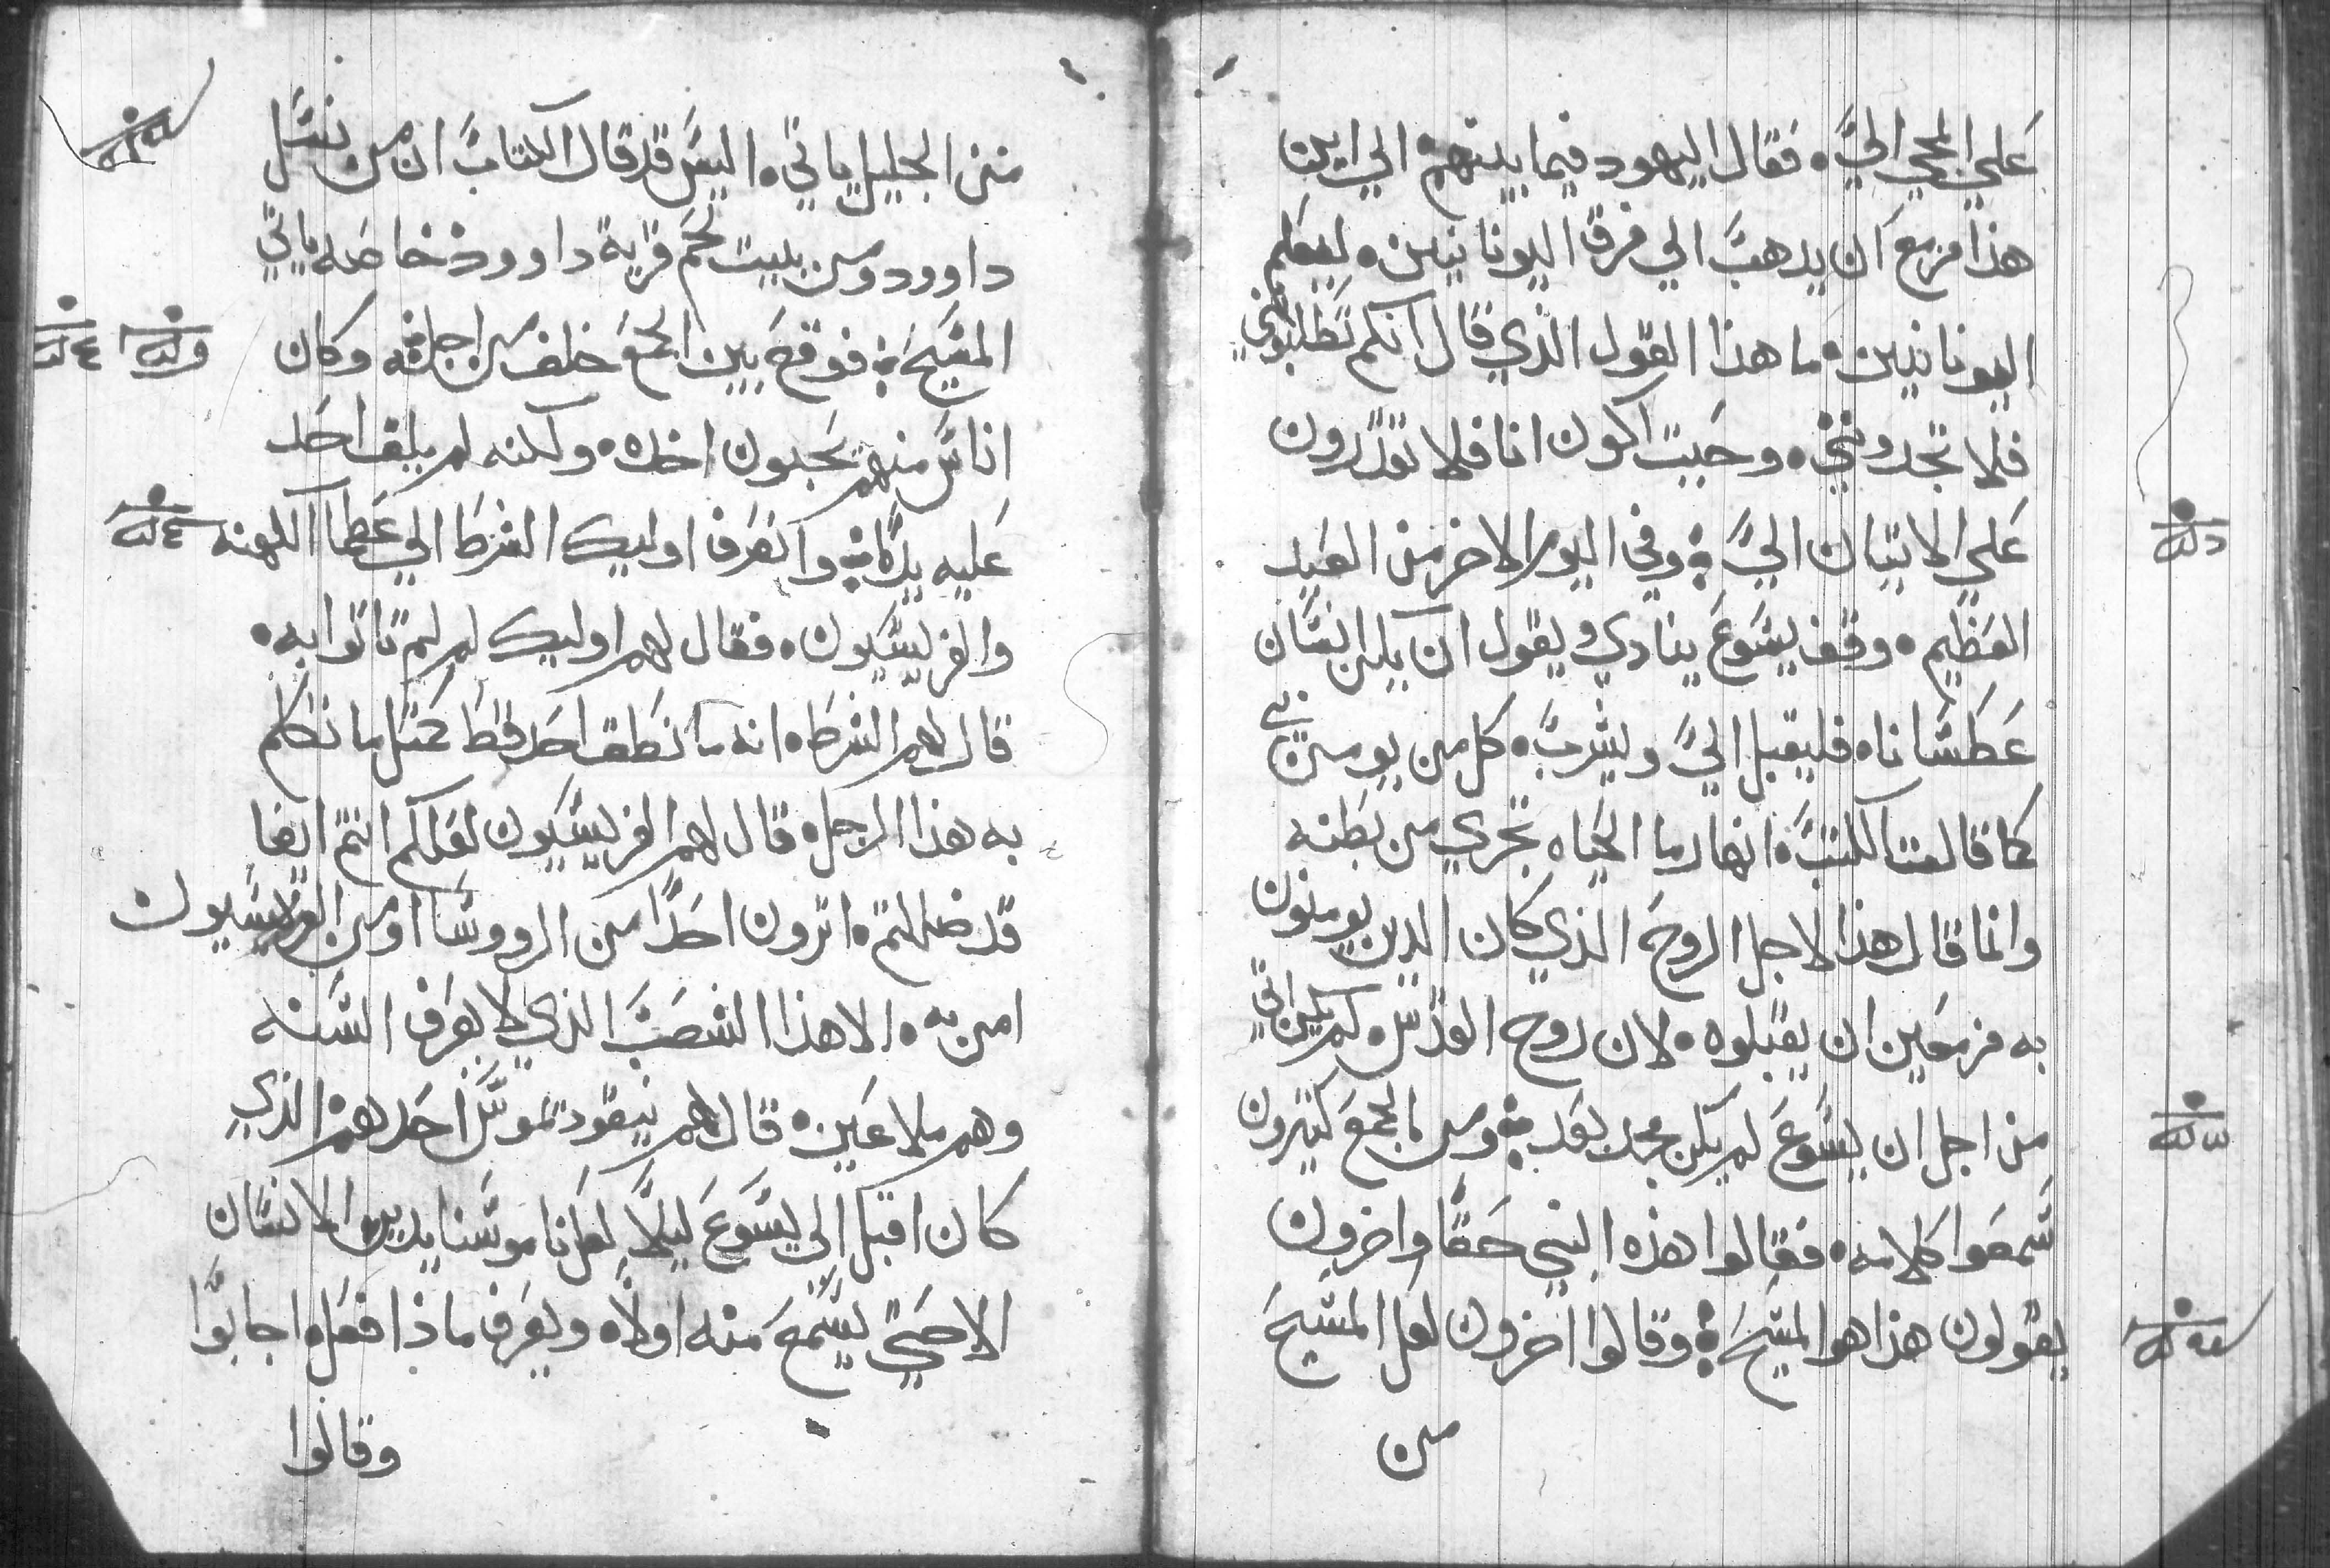 علي المجي اليَّ. فقال اليهود فيما بينهم. الي اين
هذا مزمع ان يدهب الي فرق اليونانيين. ليعلم
اليونانيين. ما هذا القول الذي قال انكم تطلبوني
فلا تجدونني. وحيت اكون انا فلا تقدرون
علي الاتيان اليَّ. وفي اليوم الاخر من العيد
العظيم. وقف يسوع ينادي ويقول ان يكن انسان
عطشانا. فليقبل اليَّ ويشرب. كل من يومن بي
كما قالت الكتب. انهار ما الحياه تجري من بطنه
وانما قال هذا لاجل الروح الذي كان الدين يومنون
به مزمعين ان يقبلوه. لان روح القدس. لم يكن اتي
من اجل ان يسوع لم يكن مجد بعد. ومن الجمع كتيرون
سمعوا كلامه. فقالوا هذه النبي حقًا واخرون
يقولون هذا هو المسيح. وقالوا اخرون لعل المسيح
من
من الجليل ياتي. اليس قد قال الكتاب ان من نسل
داوود ومن بيت لحم قرية داوود خاصه ياتي
المسيح. فوقع بين الجمع خلف من اجله. وكان
اناس منهم يحبون اخده. ولكنه لم يلق احد
عليه يدًا. وانصرف اوليك الشرط الي عظما الكهنه
والفريسيون. فقال لهم اوليك لم لم تاتوا به.
قال لهم الشرط. انه ما نطق احد قط كمتل ما تكلم
به هذا الرجل. قال لهم الفريسيون لعلكم انتم ايضا
قد ضللتم. اترون احدًا من الرووسا او من الفريسيون
امن به. الا هذا الشعب الذي لا يعرف السنه
وهم ملاعين. قال لهم نيقوديموس احدهم. الذي
كان اقبل الي يسوع ليلًا لعل ناموسنا يدين الانسان
الا حتي يسمع منه اولًا. ويعرف ماذا فعل. اجابوا
وقالوا